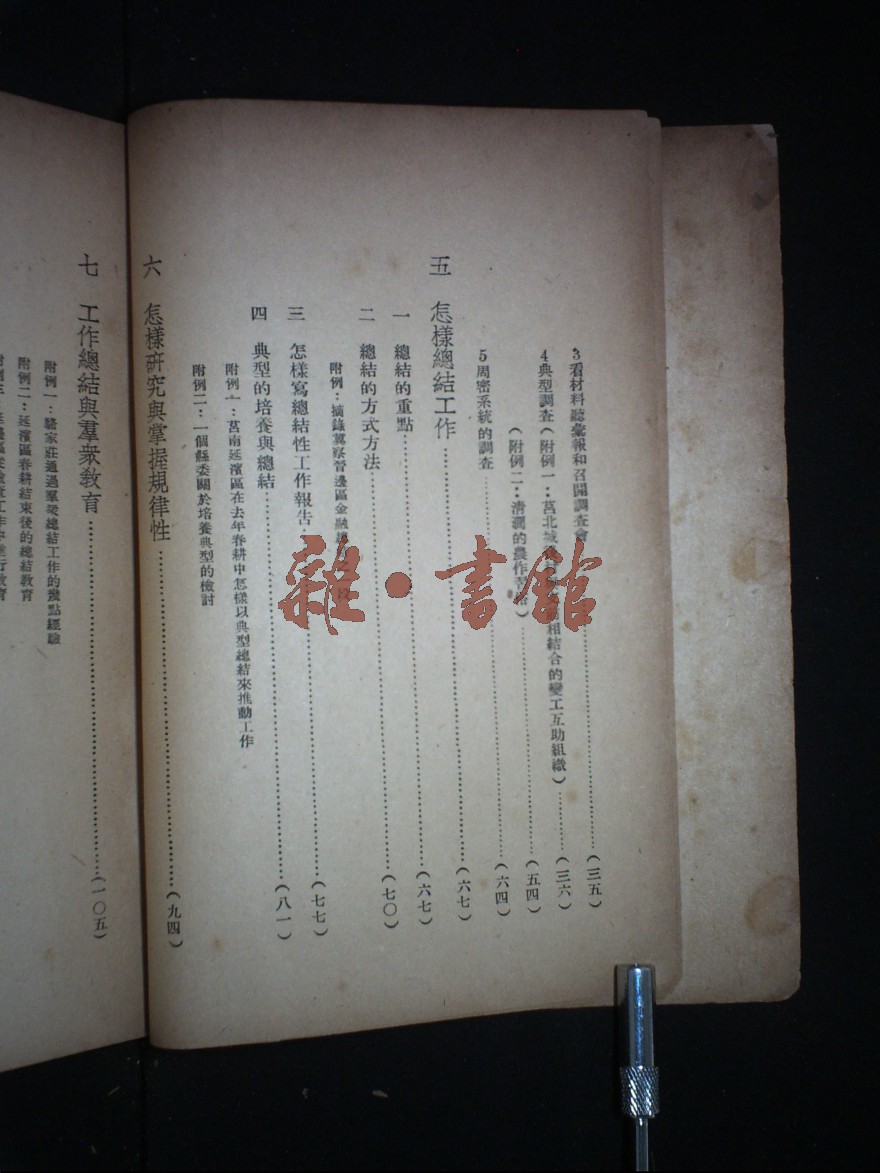 3看材料聽彙報和召開調查會……(三五)
4典型調查(附例一:莒北城 相結合的變工互助組織)……(三六)
(附例二:清澗的農作習 )……(五四)
5周密系統的調查……(六四)
五 怎樣總結工作……(六七)
一 總結的重點……(六七)
二 總結的方式方法……(七〇)
附例:摘錄冀察晉邊區金融
三 怎樣寫總結性工作報告……(七七)
四 典型的培養與總結……(八一)
附例一:莒南延濱區在去年春耕中怎樣以典型總結來推動工作
附例二:一個縣委關於培養典型的檢討
六 怎樣研究與掌握規律性……(九四)
七 工作總結與羣衆教育……(一〇五)
附例一:駱家莊通過羣衆總結工作的幾點經驗
附例二:延濱區春耕結束後的總結教育
雜·書館